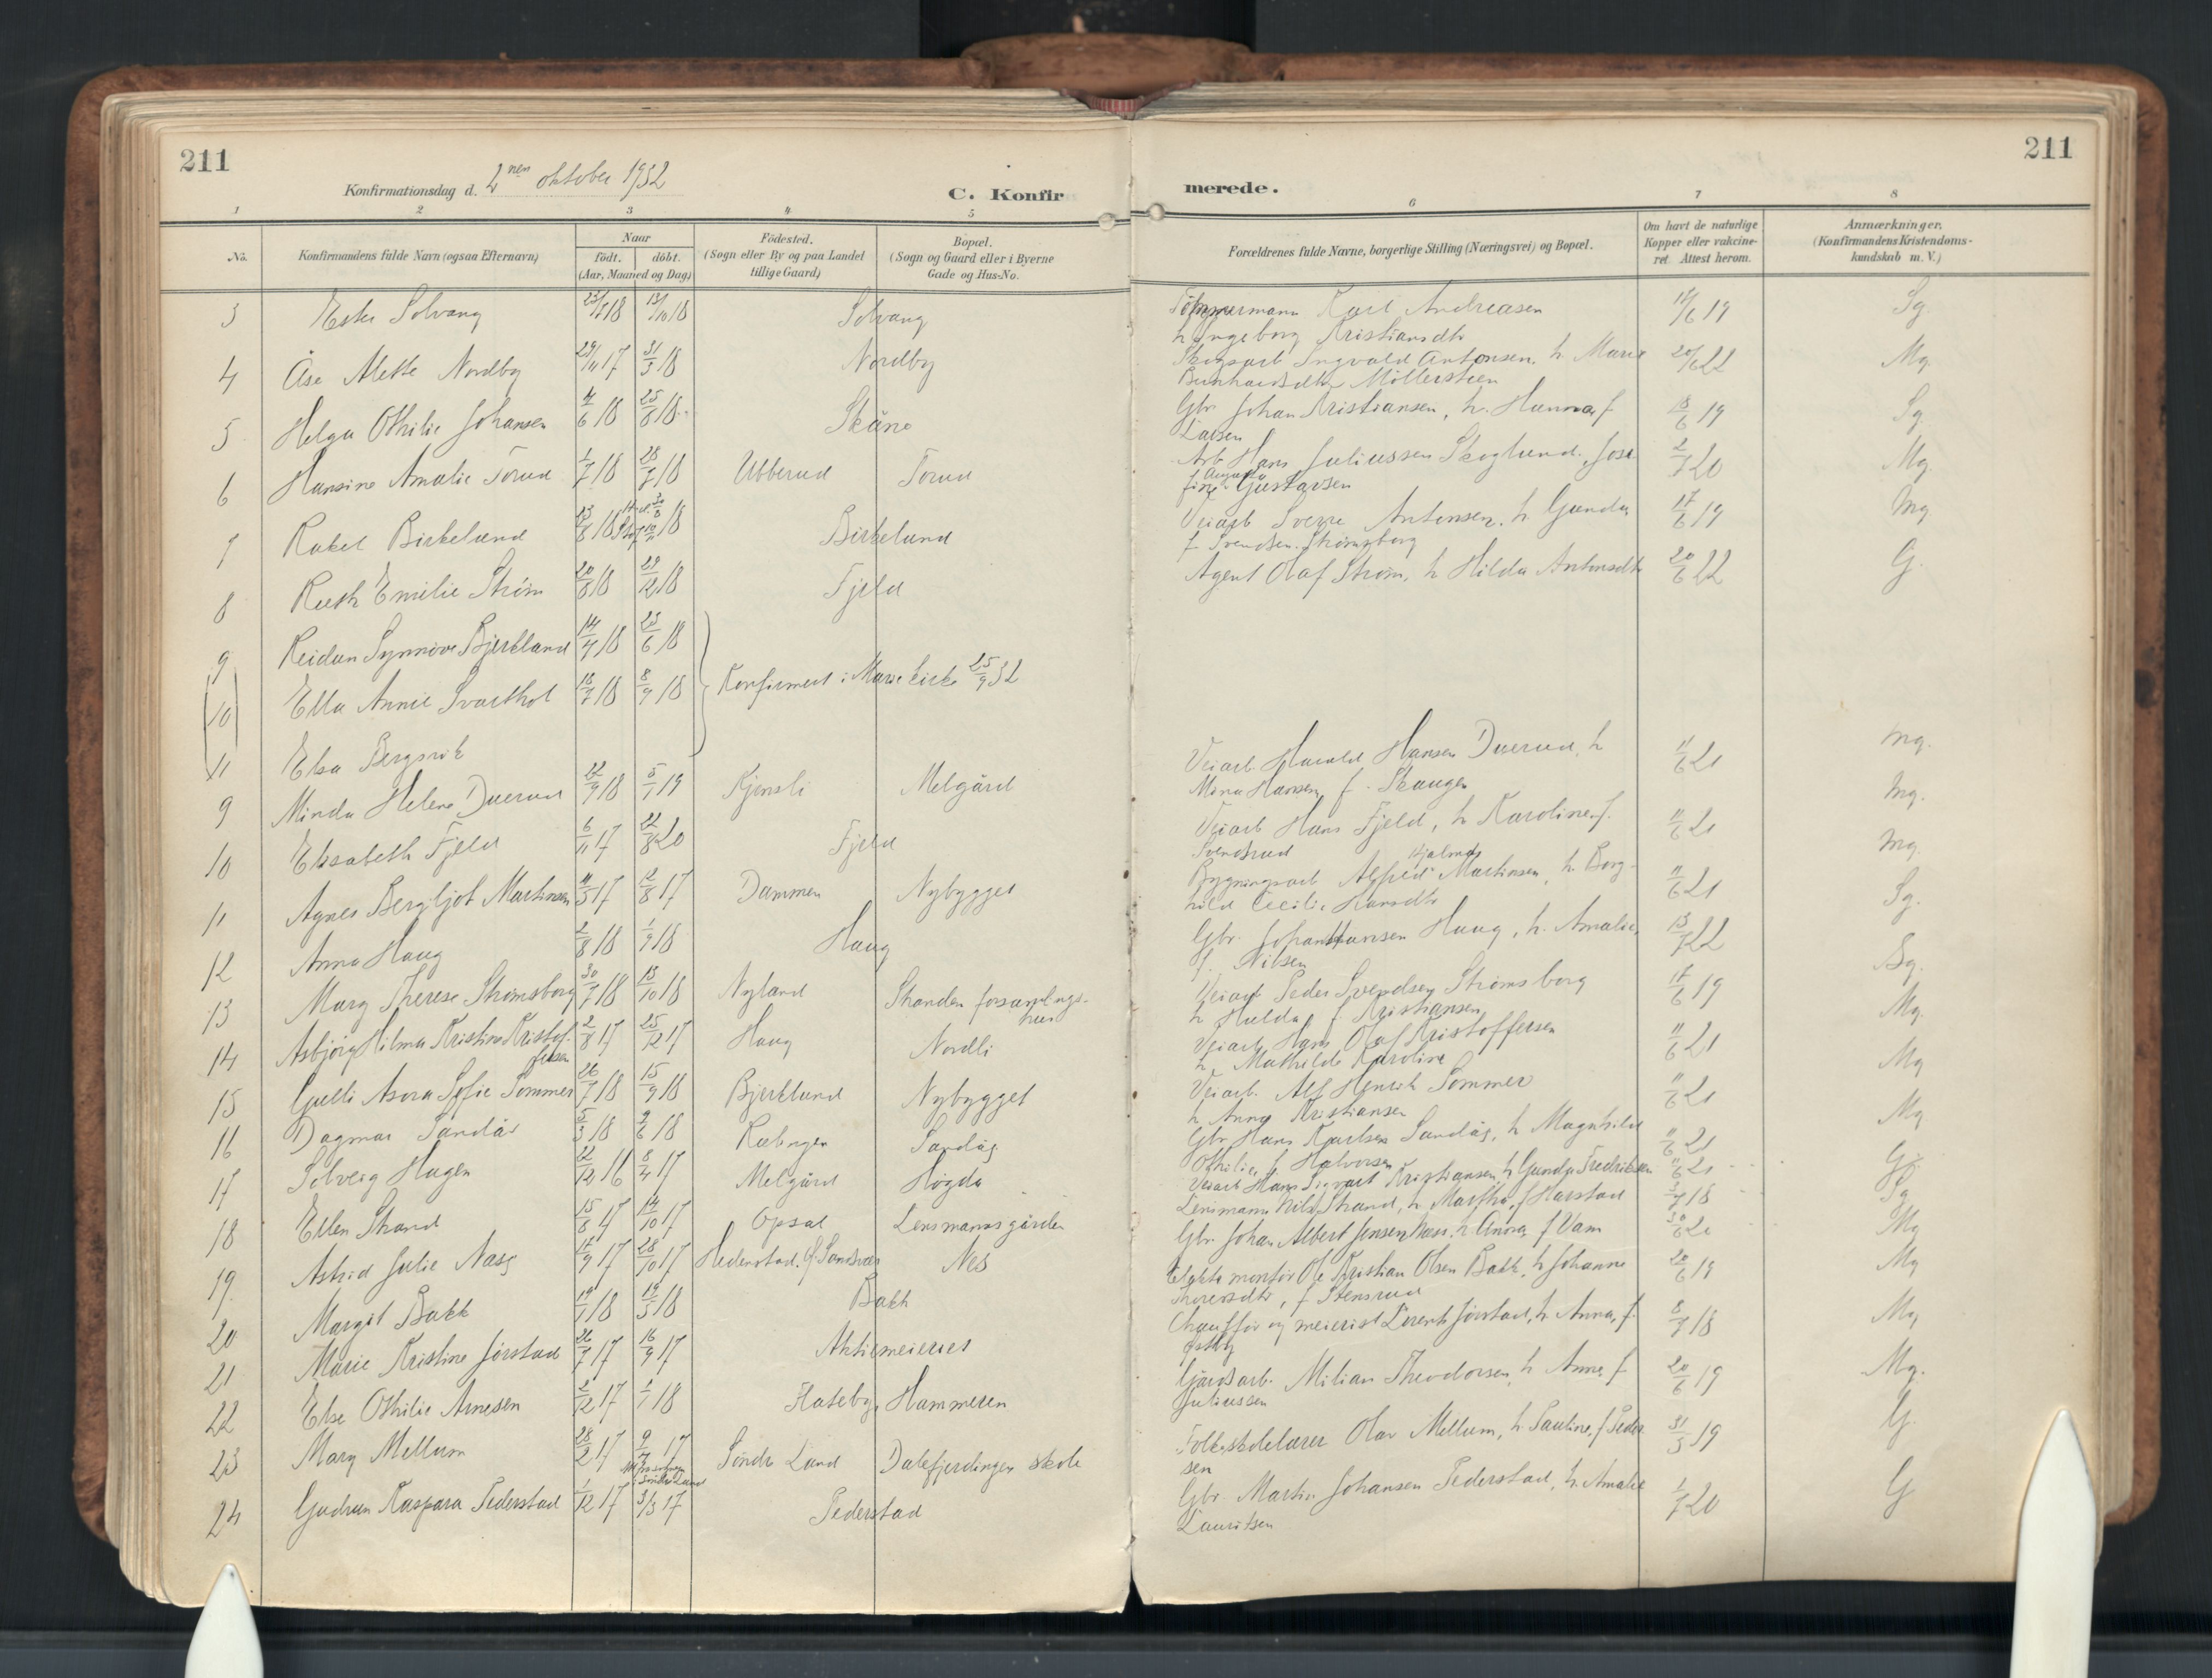 211
211
Konfirmationsdag d. 2nen oktober 1932
C. Konfirmerede.
1 2 3 4 5 6 7 8
No.
Konfirmandens fulde Navn (ogsaa Efternavn)
Naar
født. døbt.
(Aar, Maaned og Dag)
Fødested.
(Sogn eller By og paa Landet
tillige Gaard)
Bopæl.
(Sogn og Gaard eller i Byerne
Gade og Hus-No.
Forældrenes fulde Navne, borgerlige Stilling (Næringsvei) og Bopæl.
Om havt de naturlige
Kopper eller vakcine-
ret. Attest herom.
Anmærkninger.
(Konfirmandens Kristendoms-
kundskab m. V.)
3 Ester Solvang 13/10 18 Solvang Tømmermann Karl Andreasen 19 Sg
h Ingeborg Kristiansdtr
4 Åse Mette Nordby 29/11 17 31/3 18 Nordby Skogsarb Ingvald Antonsen, h. Marie 20/6 22 Mg
Møllerstuen
5 Helga Othilie Johansen 4/6 18 25/8 18 Skåne Gbr Johan Kristiansen, h. Hanna, f 18/6 19 Sg
Larsen
6 Hansine Amalie Torud 1/7 18 28/7 18 Ubberud Torud Arb Hans Juliussen Skoglund, Jose 2/7 20 Mg
fine Augusta Gustavsen
7 Rakel Birkelund 18 Birkelund Veiarb Sverre Antonsen, h. Gunda 17/6 19 Mg
f Svendsen. Strømsborg
8 Ruth Emilie Strøm 20/8 18 29/12 18 Fjeld Agent Olaf Strøm, h Hilda Antonsdtr 20/6 22 G.
9 Reidun Synnøve Bjerkland 14/4 18 23/6 18
10 Ella Annie Svarthol 18/7 18 8/9 18 Konfirmert i Marie kirke 25/9 32
11 Elsa Bergsvik
9 Minda Helene Duerud 22/9 18 5/1 19 Kjensli Melgård Veiarb. Harald Hansen Duerud, h 11/6 21 Mg.
Mina Hansen, f. Skaugen
10 Elisabeth Fjeld 6/11 17 22/8 20 Fjeld Veiarb Hans Fjeld, h Karoline, f. 11/6 21 Mg.
Svendsrud
11 Agnes Bergljot Martinsen 4/5 17 12/8 17 Dammen Nybygget Bygningsarb Alfred Hjalmar Martinsen, h. Borg- 11/6 21 Mg.
hild Cecilie Hansdtr
12 Anna Haug 2/8 18 1/9 18 Haug Gbr. Johan Hansen Haug, h. Amalie, 13/7 22 Sg.
f. Nilsen
13 Mary Therese Strømsborg 30/7 18 13/10 18 Nyland Stranden forsamlings-
hus Veiarb Peder Svendsen Strømsborg 17/6 19 Sg.
h Hulda f. Kristiansen
14 Asbjørg Hilma Kristine Kristof-
fersen 2/8 17 25/12 17 Haug Nordli Veiarb Hans Olaf Kristoffersen 11/6 21 Mg.
h. Mathilde Karoline
15 Gulli Asora Sofie Sommer 26/7 18 15/9 18 Bjerklund Nybygget Veiarb. Alf Henrik Sommer 11/6 21 Mg
h Anna Kristiansen
16 Dagmar Sandås 5/3 18 2/6 18 Sandås Gbr Hans Karlsen Sandås, h Magnhild 11/6 21 Mg
Othilie, f Halvorsen
17 Solveig Hagen 22/12 16 8/4 17 Melgård Høgda Veiarb Hans Sigvart Kristiansen, h Gunda Fredriksen 11/6 21 G
18 Ellen Strand 15/8 17 14/10 17 Opsal Lensmannsgården Lensmann Nils Strand, h Martha, f Harstad 18 Sg
19 Astrid Julie Næss 17/9 17 28/10 17 Hedenstad, Sandsvær Nes Gbr. Johan Albert Jensen Næss, h Anna, f Vam 30/6 20 Mg
20 Margit Bakk 19/1 18 19/5 18 Bakk Elektr. montør Ole Kristian Olsen Bakk, h Johanne 20/6 19 Mg
Thoresdtr, f Stensrud
21 Marie Kristine Jørstad 26/7 17 16/9 17 Aktiemeieriet Chauffør og meierist Lorents Jørstad, h Anna, f. 8/7 18 Mg
Østby
22 Else Othilie Arnesen 2/12 17 1/1 18 Flateby, Hammeren Gårdsarb. Milian Theodorsen, h Anna, f 20/6 19 Mg.
Juliussen
23 Mary Mellum 28/2 17 9/4 17 Søndre Land Dalefjerdingen skole Folkeskolelærer Olav Mellum, h Pauline, f Peder 31/5 19 G.
sen
24 Gudrun Kaspara Pederstad 1/12 17 3/3 17 Pederstad Gbr. Martin Johansen Pederstad, h. Amalie 1/7 20 G
Lauritsen